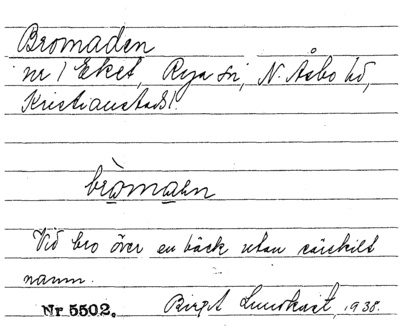 Bromaden
nr 1 Eket, Rya sn, N. Åsbo hd,
Kristianstads l.
bròmaen
Vid bro över en bäck utan särskilt
namn.
Nr 5502. Birgit Lundkvist, 1938.